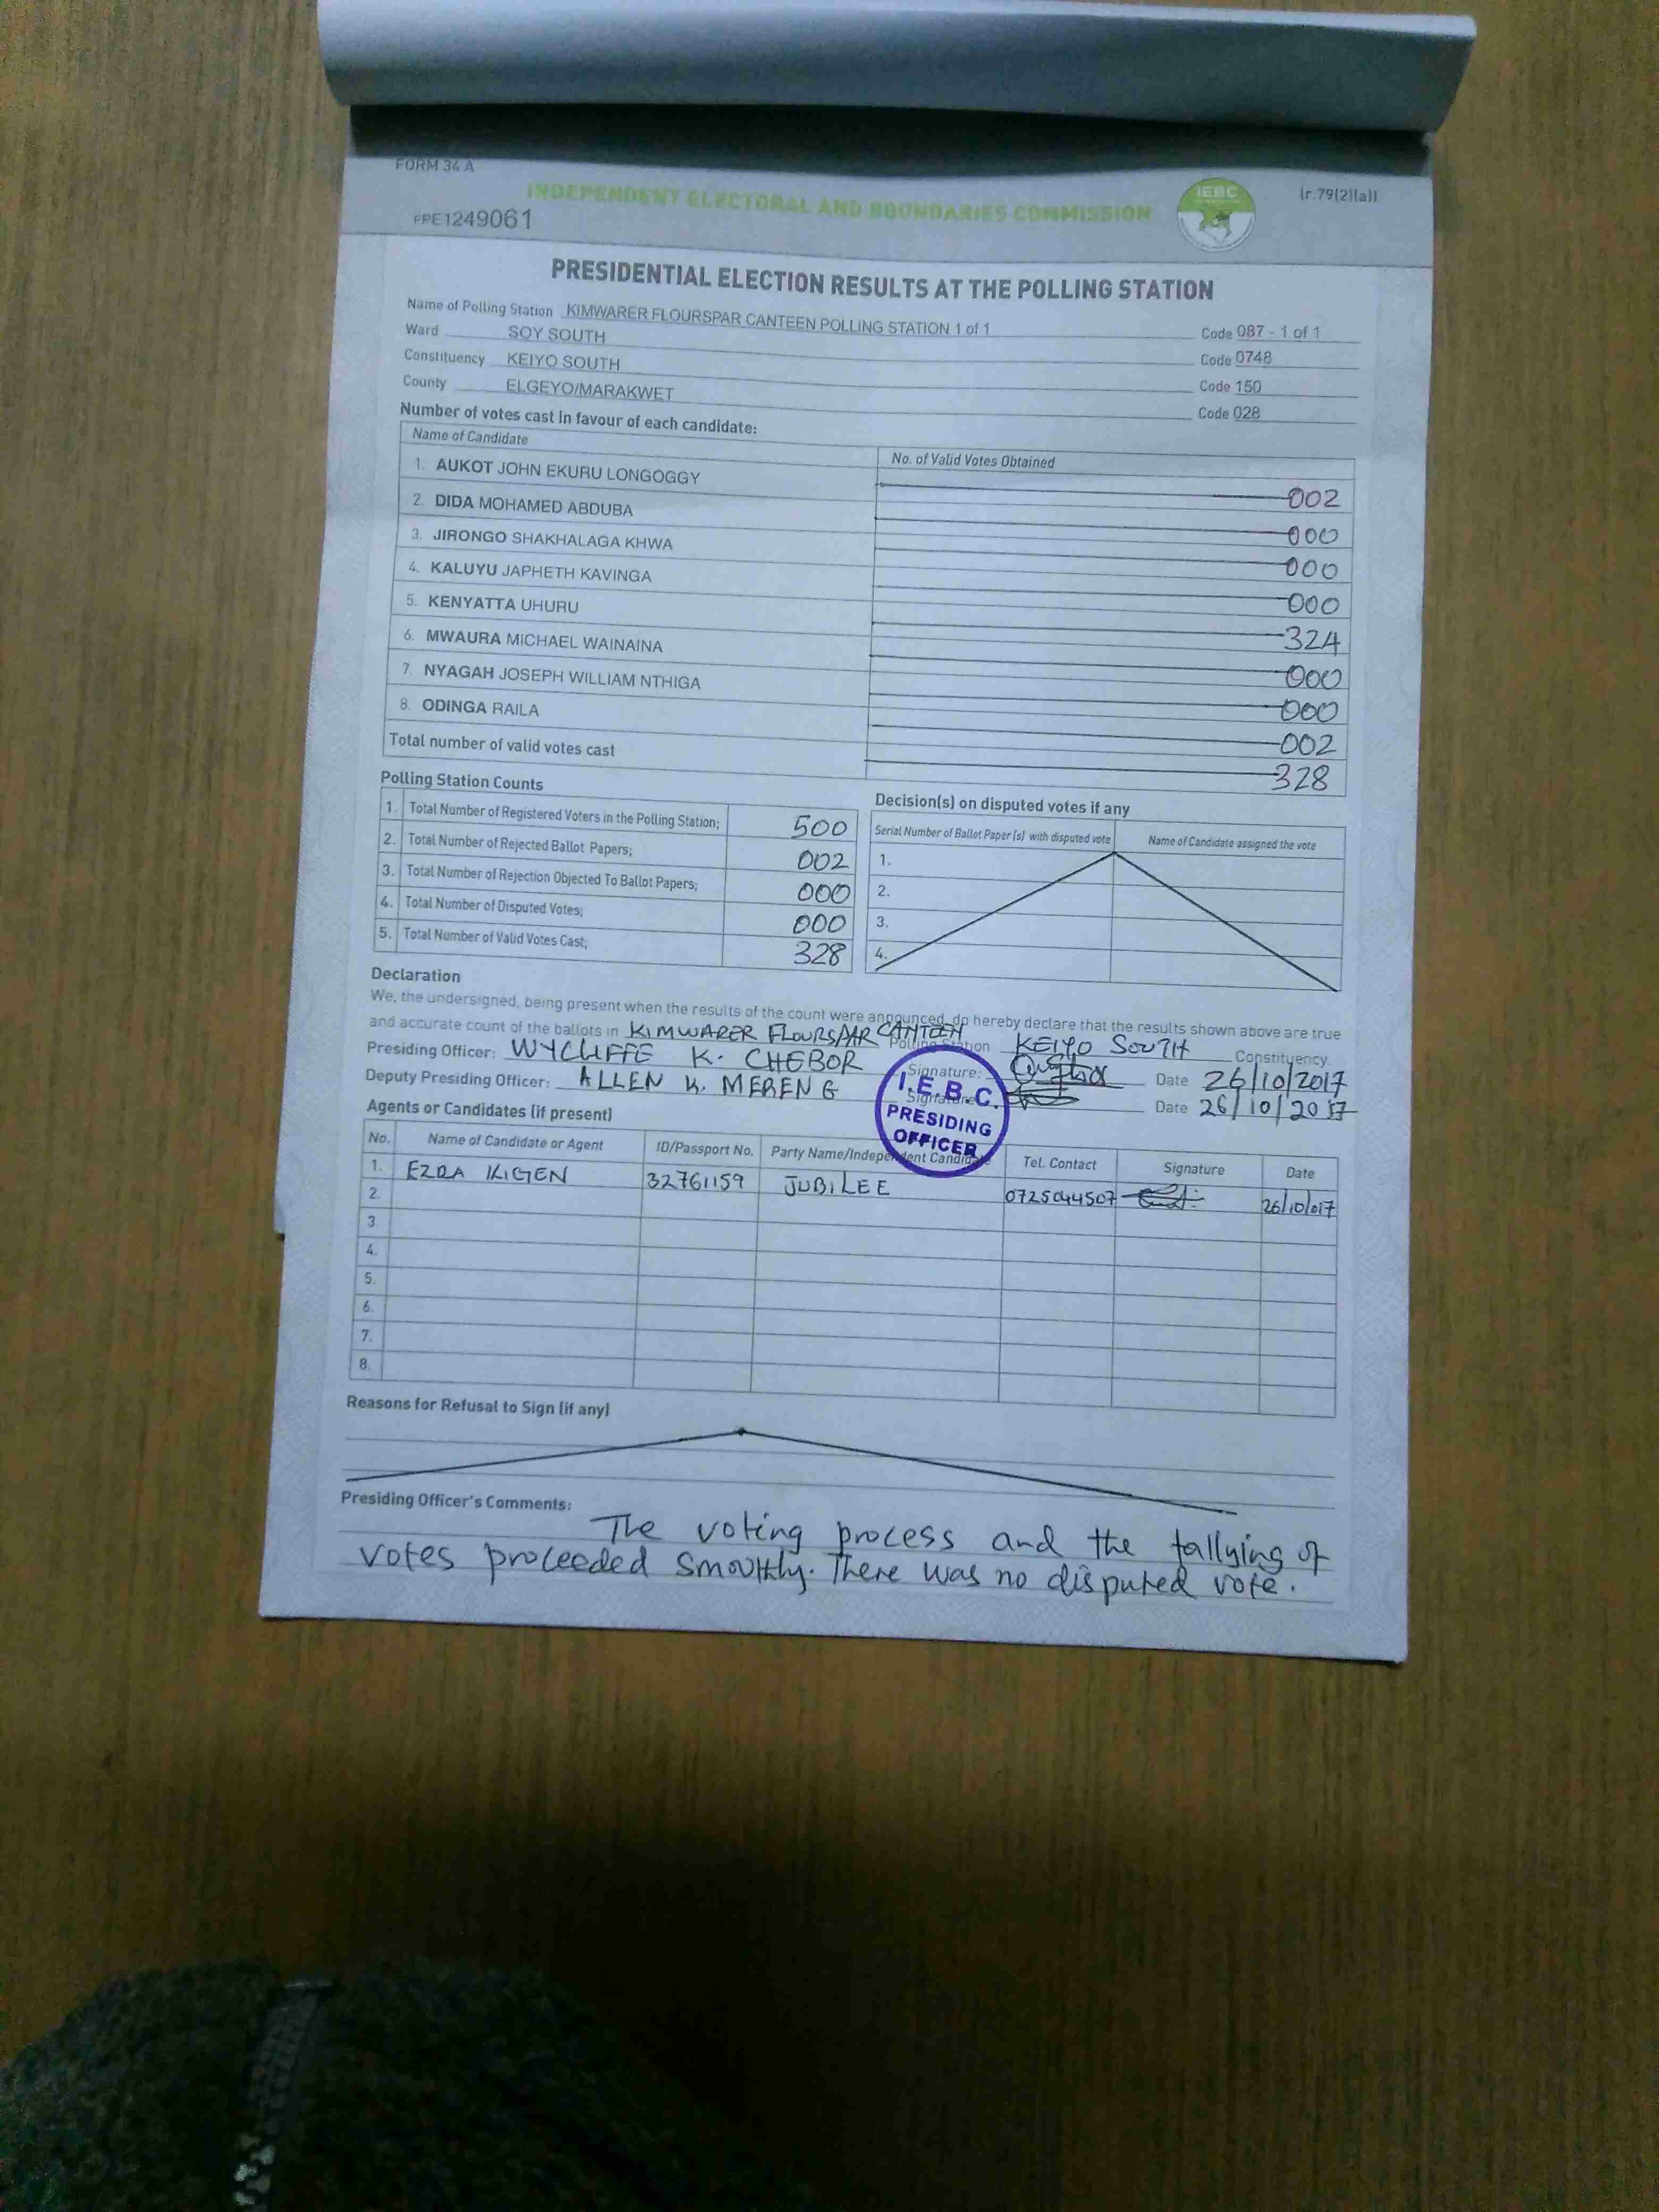 FORM 34 A
INDEPENDENT ELECTORAL AND BOUNDARIES COMMISSION
IEBC
(r.79(2)(a))
FPE1249061
PRESIDENTIAL ELECTION RESULTS AT THE POLLING STATION
Name of Polling Station KIMWARER FLOURSPAR CANTEEN POLLING STATION 1 of 1 Code 087 - 1 of 1
Ward SOY SOUTH Code 0748
Constituency KEIYO SOUTH Code 150
County ELGEYO/MARAKWET Code 028
Number of votes cast in favour of each candidate:
Name of Candidate No. of Valid Votes Obtained
1. AUKOT JOHN EKURU LONGOGGY 002
2. DIDA MOHAMED ABDUBA 000
3. JIRONGO SHAKHALAGA KHWA 000
4. KALUYU JAPHETH KAVINGA 000
5. KENYATTA UHURU 324
6. MWAURA MICHAEL WAINAINA 000
7. NYAGAH JOSEPH WILLIAM NTHIGA 000
8. ODINGA RAILA 002
Total number of valid votes cast 328
Polling Station Counts
1. Total Number of Registered Voters in the Polling Station; 500
2. Total Number of Rejected Ballot Papers; 002
3. Total Number of Rejection Objected To Ballot Papers; 000
4. Total Number of Disputed Votes; 000
5. Total Number of Valid Votes Cast; 328
Decision(s) on disputed votes if any
Serial Number of Ballot Paper (s) with disputed vote Name of Candidate assigned the vote
1.
2.
3.
4.
Declaration
We, the undersigned, being present when the results of the count were announced, do hereby declare that the results shown above are true
and accurate count of the ballots in KIMWARER FLOURSPAR CANTEEN Polling Station KEIYO SOUTH Constituency
Presiding Officer: WYCLIFFE K. CHEBOR Signature: Date 26/10/2017
Deputy Presiding Officer: ALLEN K. MERENG Signature: Date 26/10/2017
I.E.B.C.
PRESIDING
OFFICER
Agents or Candidates (if present)
No. Name of Candidate or Agent ID/Passport No. Party Name/Independent Candidate Tel. Contact Signature Date
1. EZRA KIGEN 32761159 JUBILEE 0725044507 26/10/017
2.
3.
4.
5.
6.
7.
8.
Reasons for Refusal to Sign (if any)
Presiding Officer's Comments:
The voting process and the tallying of
votes proceeded smoothly. There was no disputed vote.